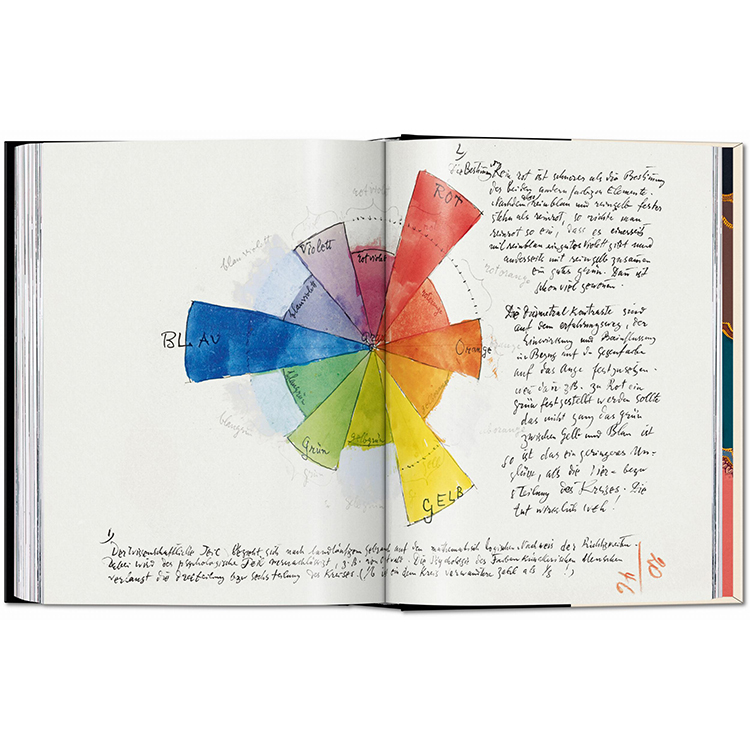 rotviolett
blauviolett
Violett
rotviolett
blauviolett
ROT
rotorange
BLAU
Orange
blaugrün
blaugrün
Grün
grün
gelbgrün
GELB
1)
Die Bestimmung Rein rot ist schwerer als die Bestimmung
der beiden andern farbigen Elemente.
Nachdem aber reinblau und reingelb fester
stehn als reinrot, so richte man
reinrot so ein, dass es einerseits
mit reinblau ein gutes Violett gibt und
anderseits mit reingelb zusammen
ein gutes
schon viel gewonnen.
Die Diametral Kontraste sind
auf dem erfahrungsweg, der
Einwirkung und Beeinflussung
in Bezug auf die Gegenfarbe
auf das Auge festzusetzen.
wenn dann z.B. zu Rot ein
grün festgestellt werden sollte
das nicht ganz das grün
zwischen Gelb und Blau ist
so ist das ein geringeres Un-
glück, als die
teilung des Kreises. Die
tut wirklich weh!
1)
Der wissenschaftliche Teil bezieht sich nach landläufigem gebrauch auf den mathematisch logischen Nachweis der Richtigkeiten.
Dabei wird der psychologische Teil vernachlässigt, z.B. von Die Psychologie des Farben Künstlerischen Menschen
verlangt die Dreiteilung bzw sechsteilung des Kreises. (1/6 ist ein dem Kreis verwandtere Zahl als 1/8 !)
20
46